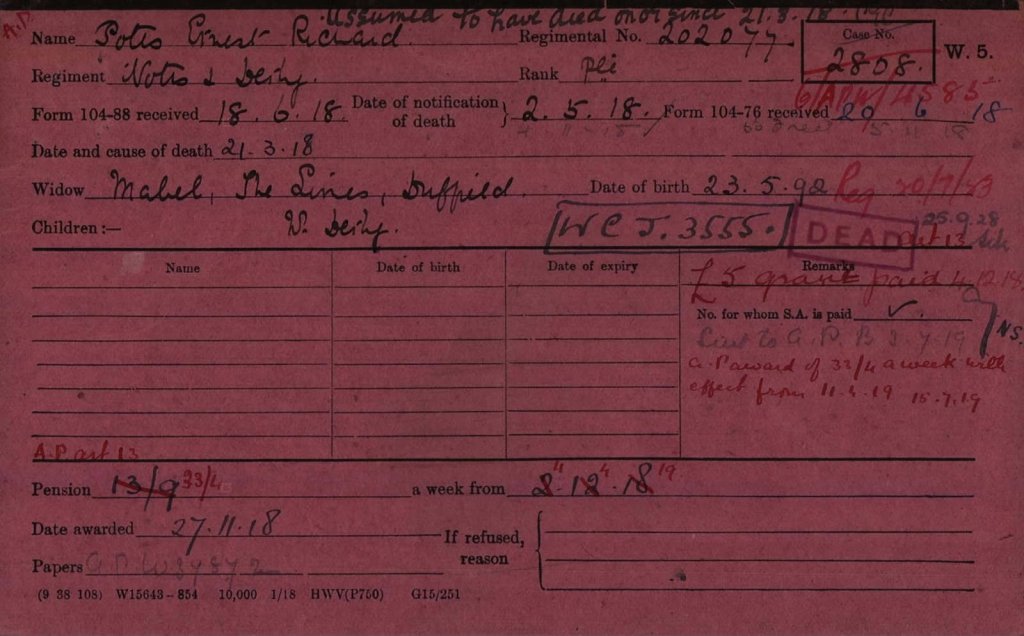 A.P. Assumed to have died on or since 21.3.18
Name Potts Ernest Richard Regimental No. 202077 Case No. 2808. W. 5.
Regiment Notts & Derby. Rank Pte
6/APW/4585
Form 104-88 received 18.6.18. Date of notification of death } 2.5.18. Form 104-76 received 20 6 18
Date and cause of death 21.3.18
Widow Mabel, The Lines, Duffield. Date of birth 23.5.92 Reg 20/7/23
Children :— Nr Derby. WCJ.3555. DEAD 25.9.28
Art 13
Name Date of birth Date of expiry Remarks
£5 grant paid 4.12.18
No. for whom S.A. is paid ✓. NS.
Sent to A.P.B 3.7.19
A.P award of 33/4 a week with
effect from 11.4.19 15.7.19
A.P art 13
Pension 13/9 33/4 a week from 2.12.18 4 19
Date awarded 27.11.18 If refused, reason
Papers A.P.W 39872
(9 38 108) W15643-854 10,000 1/18 HWV(P750) G15/251